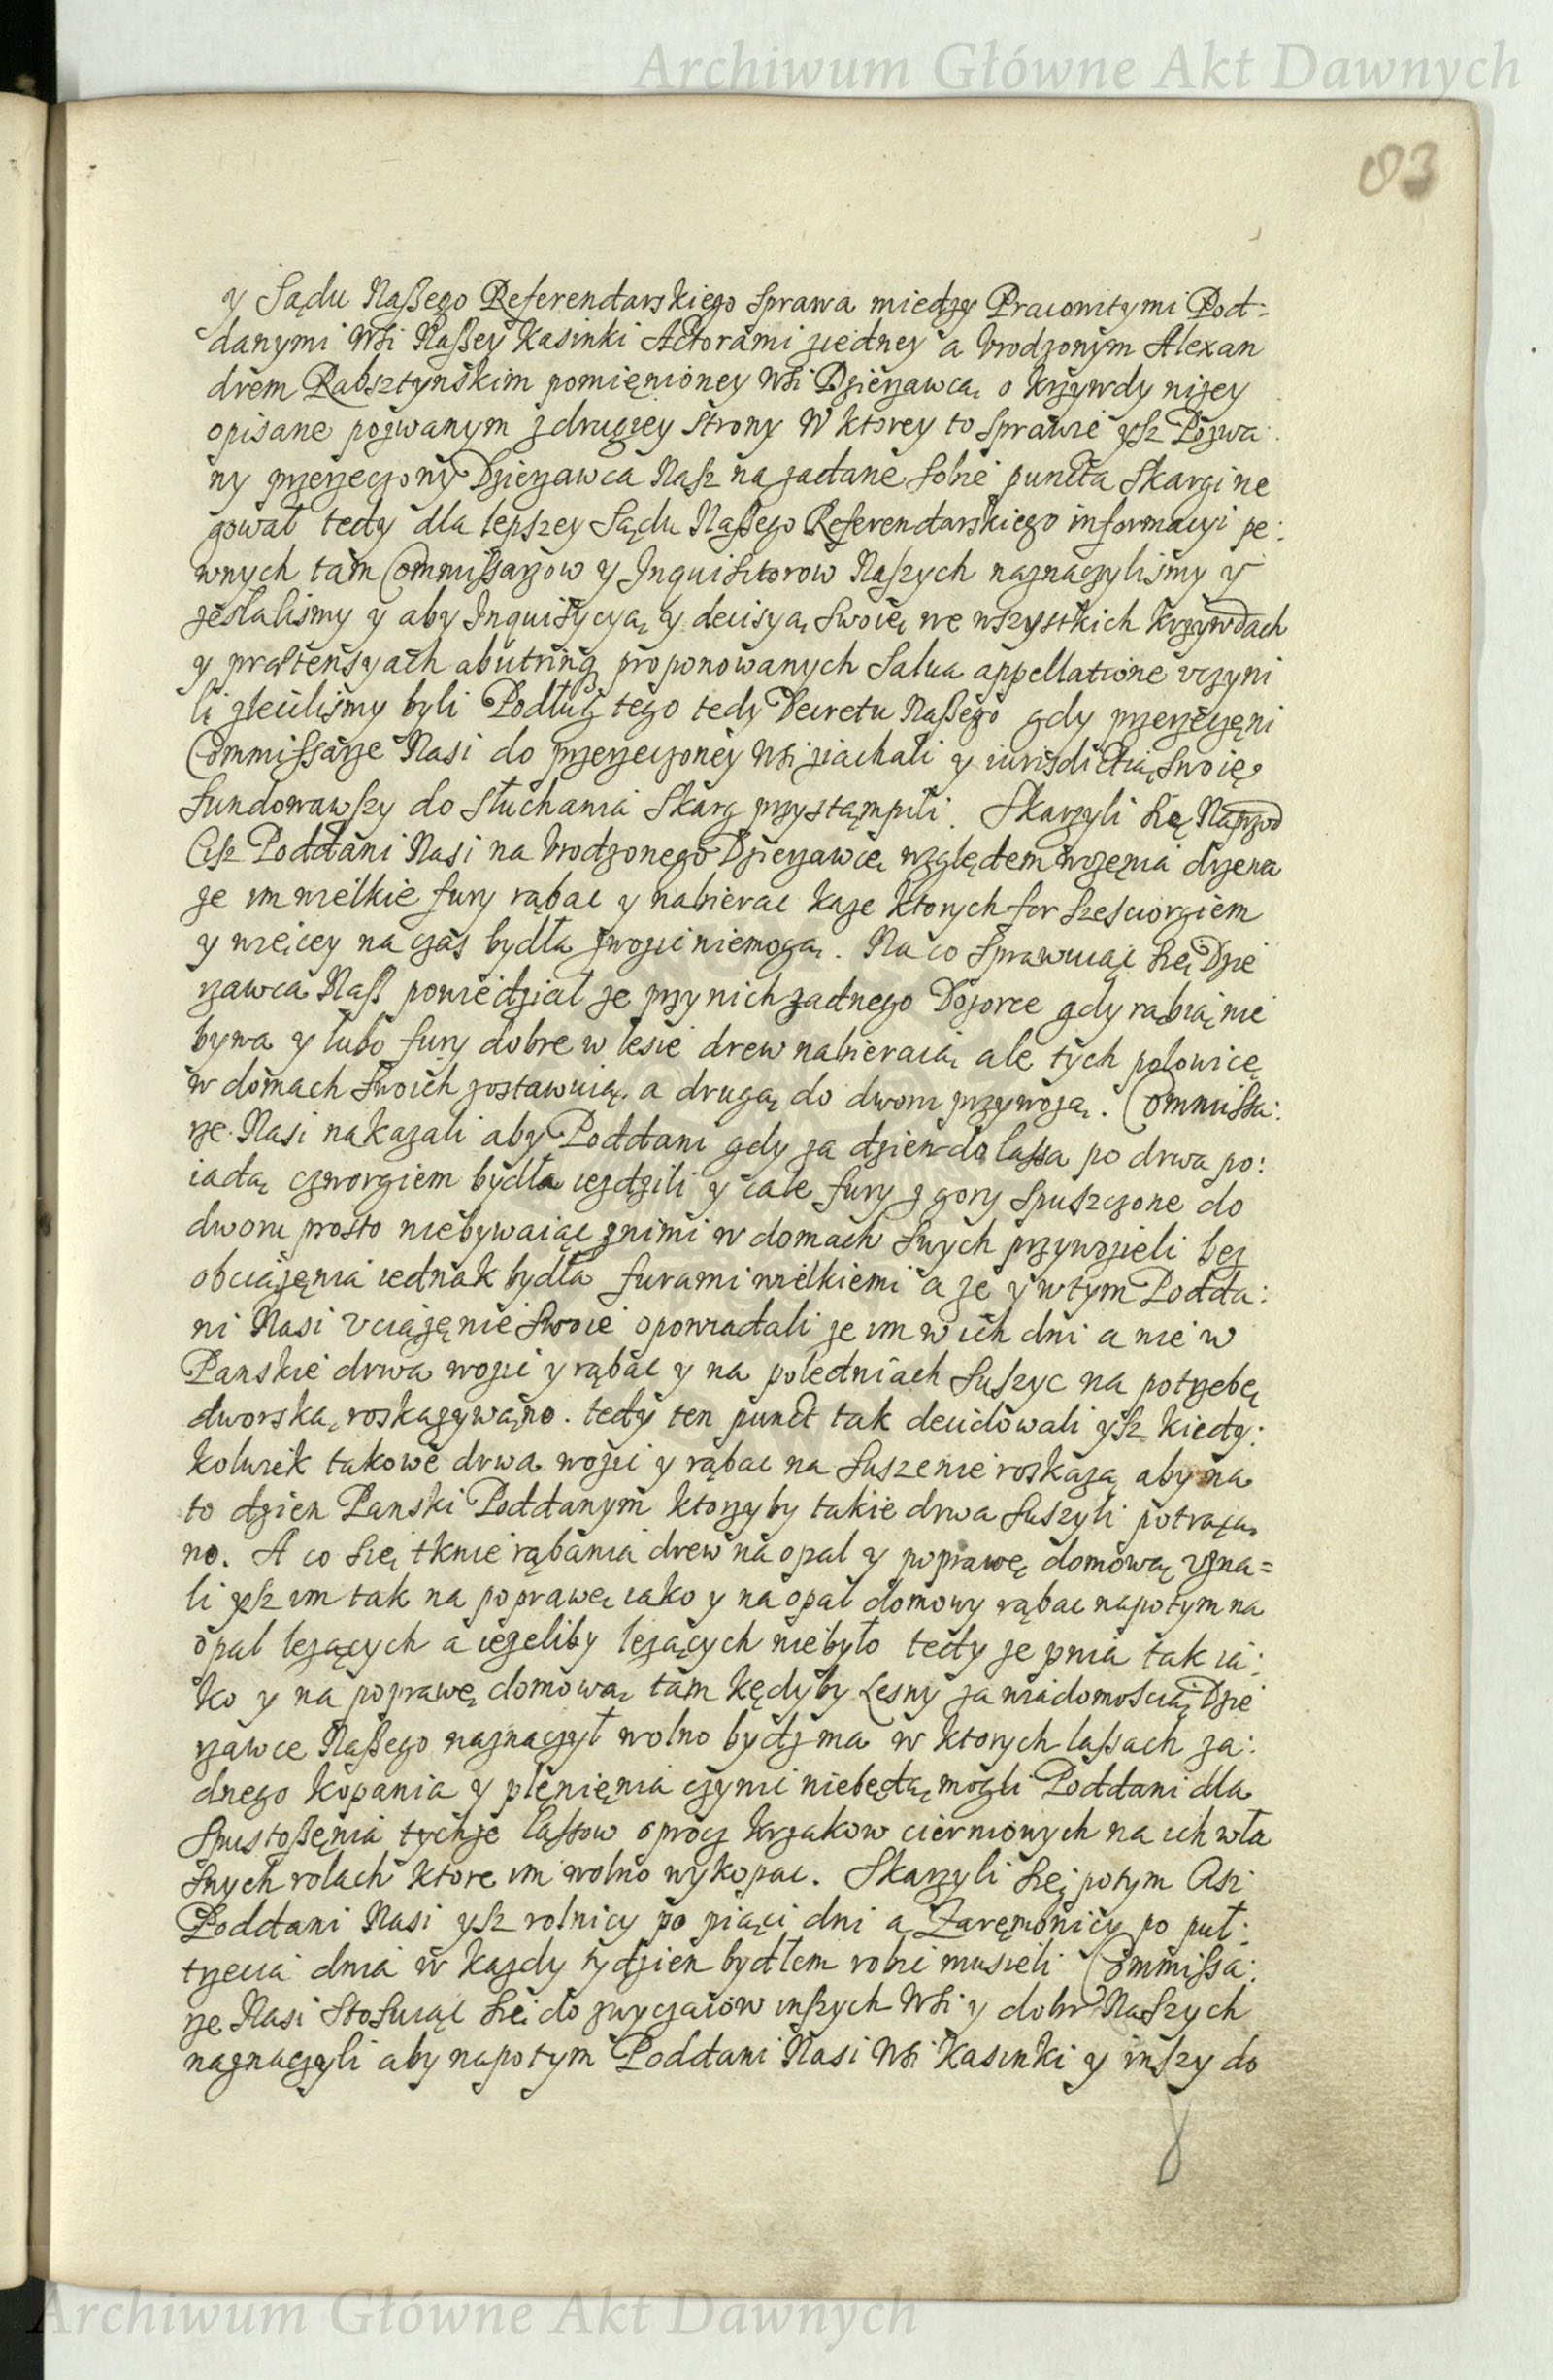 Archiwum Główne Akt Dawnych
83
y Sądu Naßego Referendarskiego sprawa między Pracowitymi Pod=
danymi Wsi Naßey Kasinki Actorami z iedney a Vrodzonym Alexan
drem Rabsztynskim pomięnioney Wsi Dzierzawcą o krzywdy nizey
opisane pozwanym z drugiey strony W ktorey to sprawie ysz Pozwa
ny przerzeczony Dzierzawca Nasz na zadane sobie puncta skargi ne
gował tedy dla lepszey Sądu Naßego Referendarskiego informacyi pe:
wnych tam Commissarzow y Inquisitorow Naszych naznaczylismy y
zesłalismy y aby Inquisycyą y decisyą swoię we wszystkich krzywdach
y praetensyach ab utrinq proponowanych salua appellatione vczyni
li zlecilismy byli Podług tego tedy Decretu Naßego gdy przerzeczęni
Commissarze Nasi do przerzeczoney Wsi ziachali y iurisdictią swoię
fundowawszy do słuchania skarg przystąmpili. Skarzyli się Naprzod
Cisz Poddani Nasi na Vrodzonego Dzierzawcę względem wozęnia drzewa
ze im wielkie fury rąbac y nabierac kaze ktorych for szesciorgiem
y więcey na czas bydła zwozic niemogą. Na co sprawuiąc się Dzie
rzawca Naß powiedział ze przy nich zadnego Dozorce gdy rąbią nie
bywa y lubo fury dobre w lesie drew nabieraią ale tych połowicę
w domach swoich zostawuią a drugą do dworu przywozą. Commissa:
rze Nasi nakazali aby Poddani gdy za dzien do lassa po drwa po:
iadą czworgiem bydła iezdzili y całe fury z gory spuszczone do
dworu prosto niebywaiąc z nimi w domach swych przywozieli bez
obciązęnia iednak bydła furami wielkiemi a ze y w tym Podda:
ni Nasi vciązęnie swoie opowiadali ze im w ich dni a nie w
Panskie drwa wozic y rąbac y na poledniach suszyc na potrzebę
dworską roskazywąno. tedy ten punct tak decidowali ysz kiedy:
kolwiek takowe drwa wozic y rąbac na suszenie roskazą aby na
to dzien Panski Poddanym ktorzyby takie drwa suszyli potrąca
no. A co się tknie rąbania drew na opał y poprawę domową vzna=
li ysz im tak na poprawę iako y na opał domowy rąbac napotym na
opal lezących a iezeliby lezących niebyło tedy ze pnia tak ia:
ko y na poprawę domową tam kędyby Lesny za wiadomoscią Dzie
rzawce Naßego naznaczył wolno bydz ma w ktorych lassach za:
dnego kopania y plęnięnia czynic niebędą mogli Poddani dla
spustoßęnia tychze lassow oprocz krzakow cierniowych na ich wła
snych rolach ktore im wolno wykopac. Skarzyli się potym Cisz
Poddani Nasi ysz rolnicy po piąci dni a Zaręmbnicy po puł:
trzecia dnia w kazdy tydzien bydłem robic musieli Commissa:
rze Nasi stosuiąc się do zwyczaiow inszych Wsi y dobr Naszych
naznaczyli aby napotym Poddani Nasi Wsi Kasinki y inszy do
Archiwum Główne Akt Dawnych